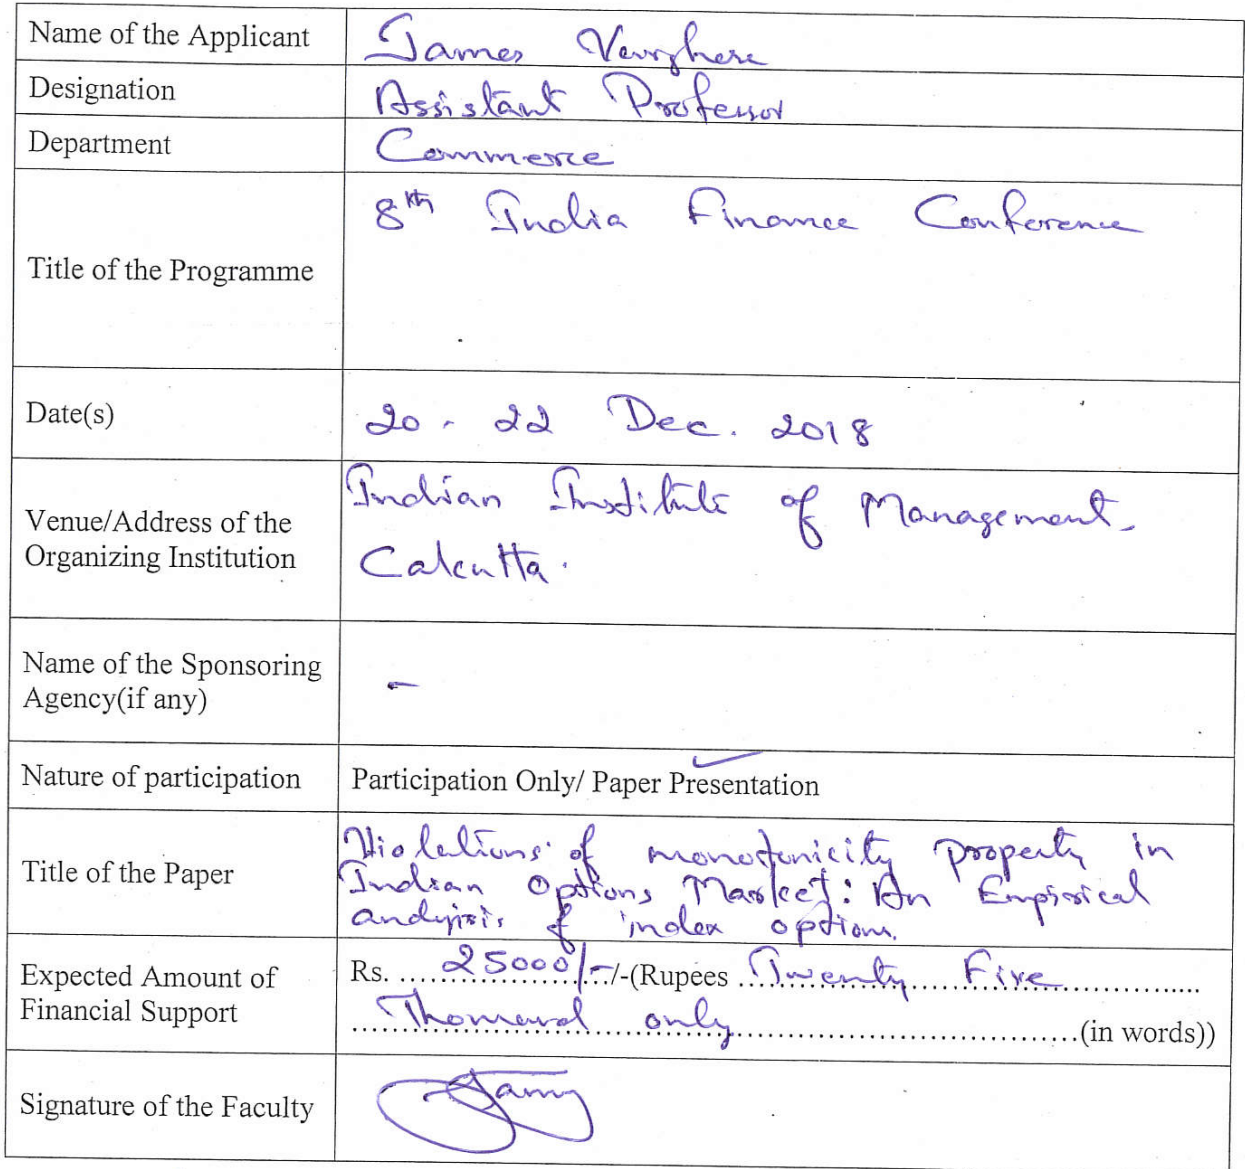 Name of the Applicant
James Varghese
Designation
Assistant Professor
Department
Commerce
Title of the Programme
8th India Finance Conference
Date(s)
20 - 22 Dec. 2018
Venue/Address of the
Organizing Institution
Indian Institute of Management,
Calcutta.
Name of the Sponsoring
Agency(if any)
-
Nature of participation
Participation Only/ Paper Presentation ✓
Title of the Paper
Violations of monotonicity property in
Indian Options Market: An Empirical
analysis of index options.
Expected Amount of
Financial Support
Rs. ....25000/-../-(Rupees ...Twenty Five......
....Thousand only....(in words))
Signature of the Faculty
James